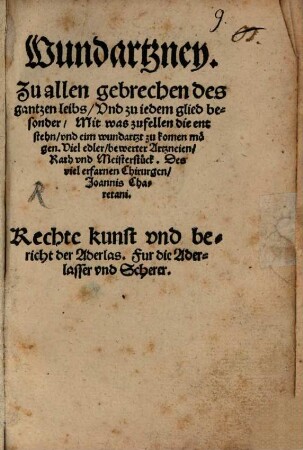 9.
Wundartzney.
Zu allen gebrechen des
gantzen leibs/ Vnd zu iedem glied be-
sonder/ Mit was zufellen die ent
stehn/ vnd eim wundartzt zu komen mö
gen. Viel edler/ bewerter Artzneien/
Rath vnd Meisterstück. Des
viel erfarnen Chirurgen/
Joannis Cha-
retani.
Rechte kunst vnd be-
richt der Aderlas. Fur die Ader-
lasser vnd Scherer.